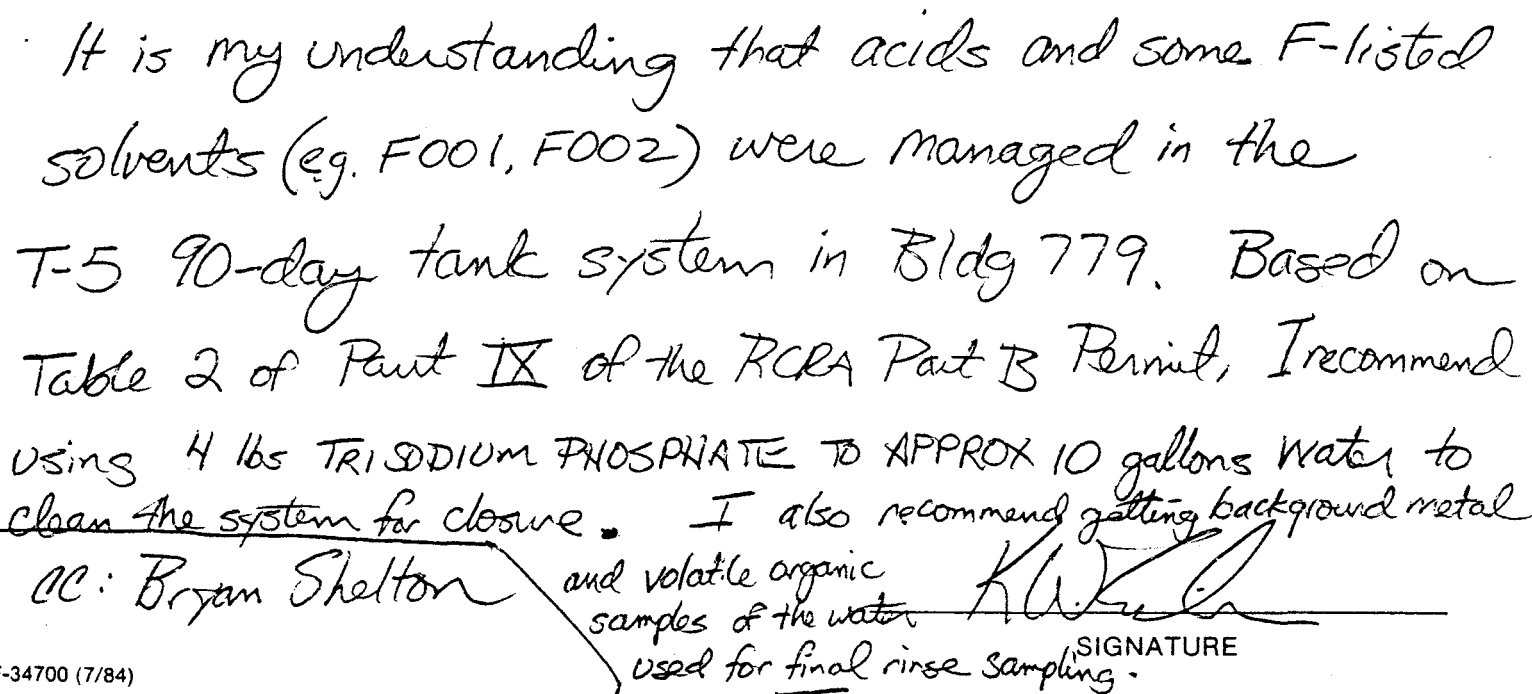 It is my understanding that acids and some F-listed
solvents (eg. F001, F002) were managed in the
T-5 90-day tank system in Bldg 779. Based on
Table 2 of Part IX of the RCRA Part B Permit, I recommend
using 4 lbs TRISODIUM PHOSPHATE TO APPROX 10 gallons water to
clean the system for closure. I also recommend getting background metal
and volatile organic
samples of the water
used for final rinse sampling.
CC: Bryan Shelton
SIGNATURE
-34700 (7/84)